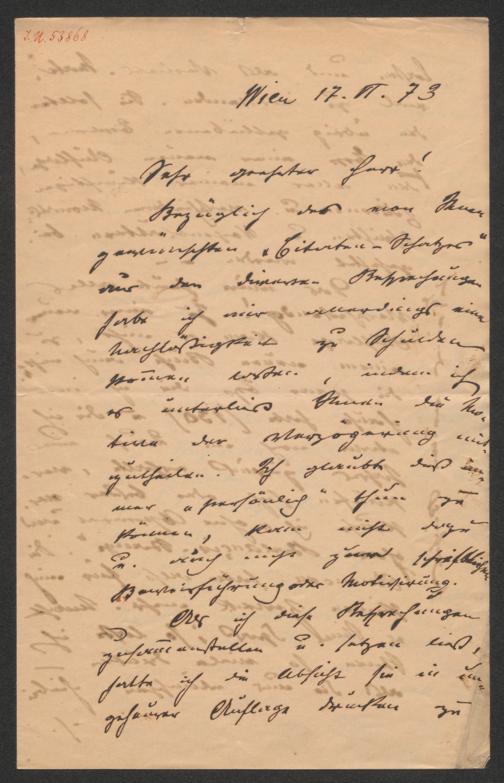 I.N. 58868
Wien 17. VI. 73
Sehr geehrter Herr!
Bezüglich des von Ihnen
gewünschten „Citaten-Schatzes"
aus den diversen Besprechungen
habe ich mir allerdings eine
Nachläßigkeit zu Schulden
kommen lassen, indem ich
es unterließ Ihnen die Mo-
tive der Verzögerung mit-
zutheilen. Ich glaubte dies im-
mer „persönlich" thun zu
können, kam nicht dazu
u. auch nicht zur schriftlichen
Beweisführung oder Motivirung.
Als ich diese Besprechungen
zusammenstellen u. setzen ließ,
hatte ich die Absicht sie in un-
geheurer Auflage drucken zu